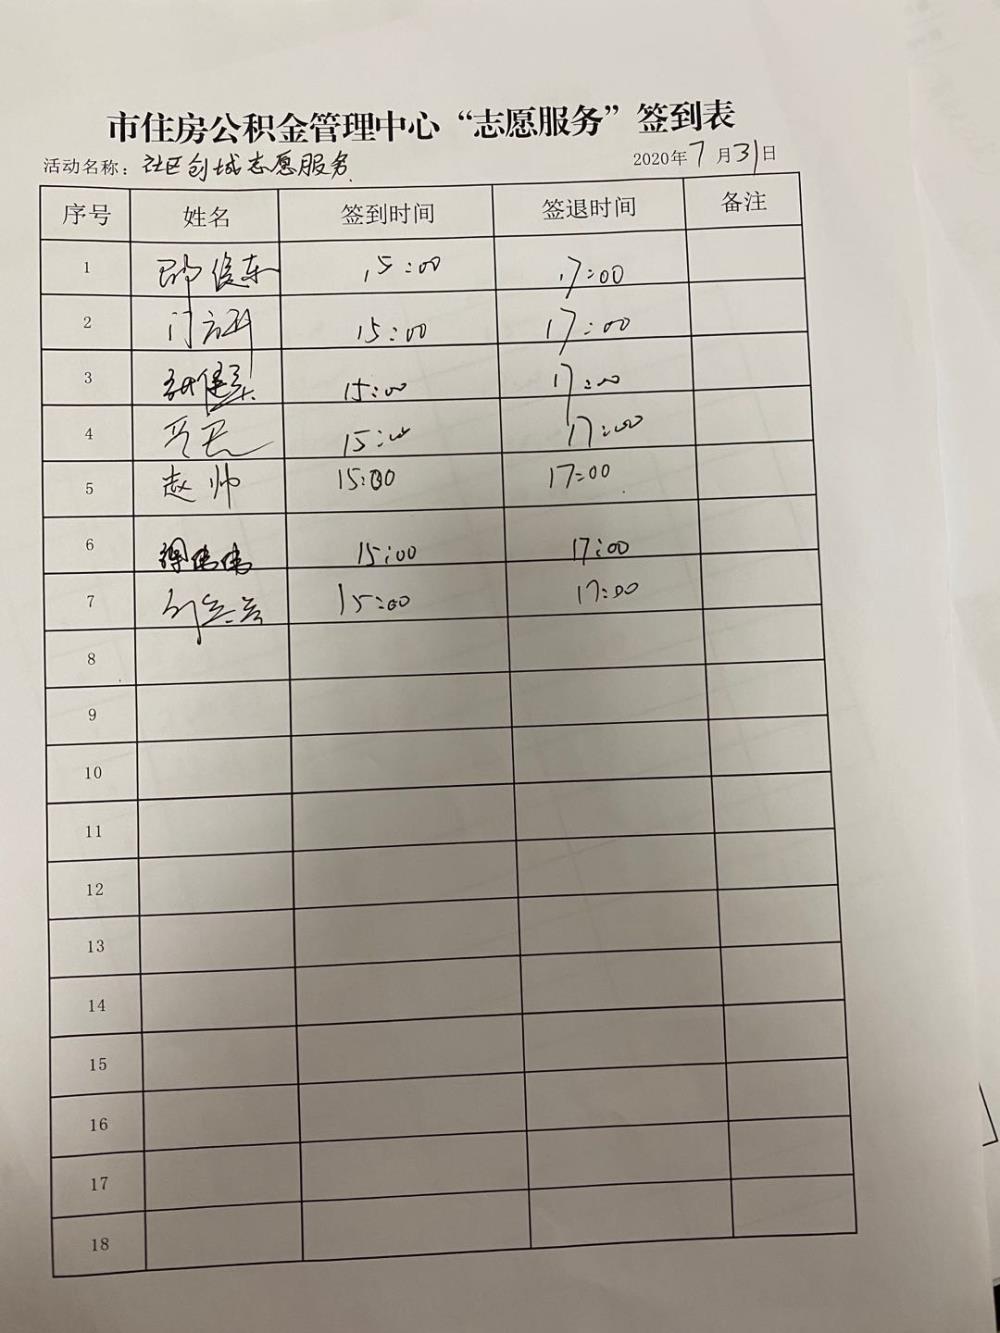 市住房公积金管理中心“志愿服务”签到表
活动名称：社区创城志愿服务 2020年7月31日
序号 姓名 签到时间 签退时间 备注
1 15:00 17:00
2 15:00 17:00
3 15:00 17:00
4 15:00 17:00
5 赵帅 15:00 17:00
6 15:00 17:00
7 15:00 17:00
8
9
10
11
12
13
14
15
16
17
18